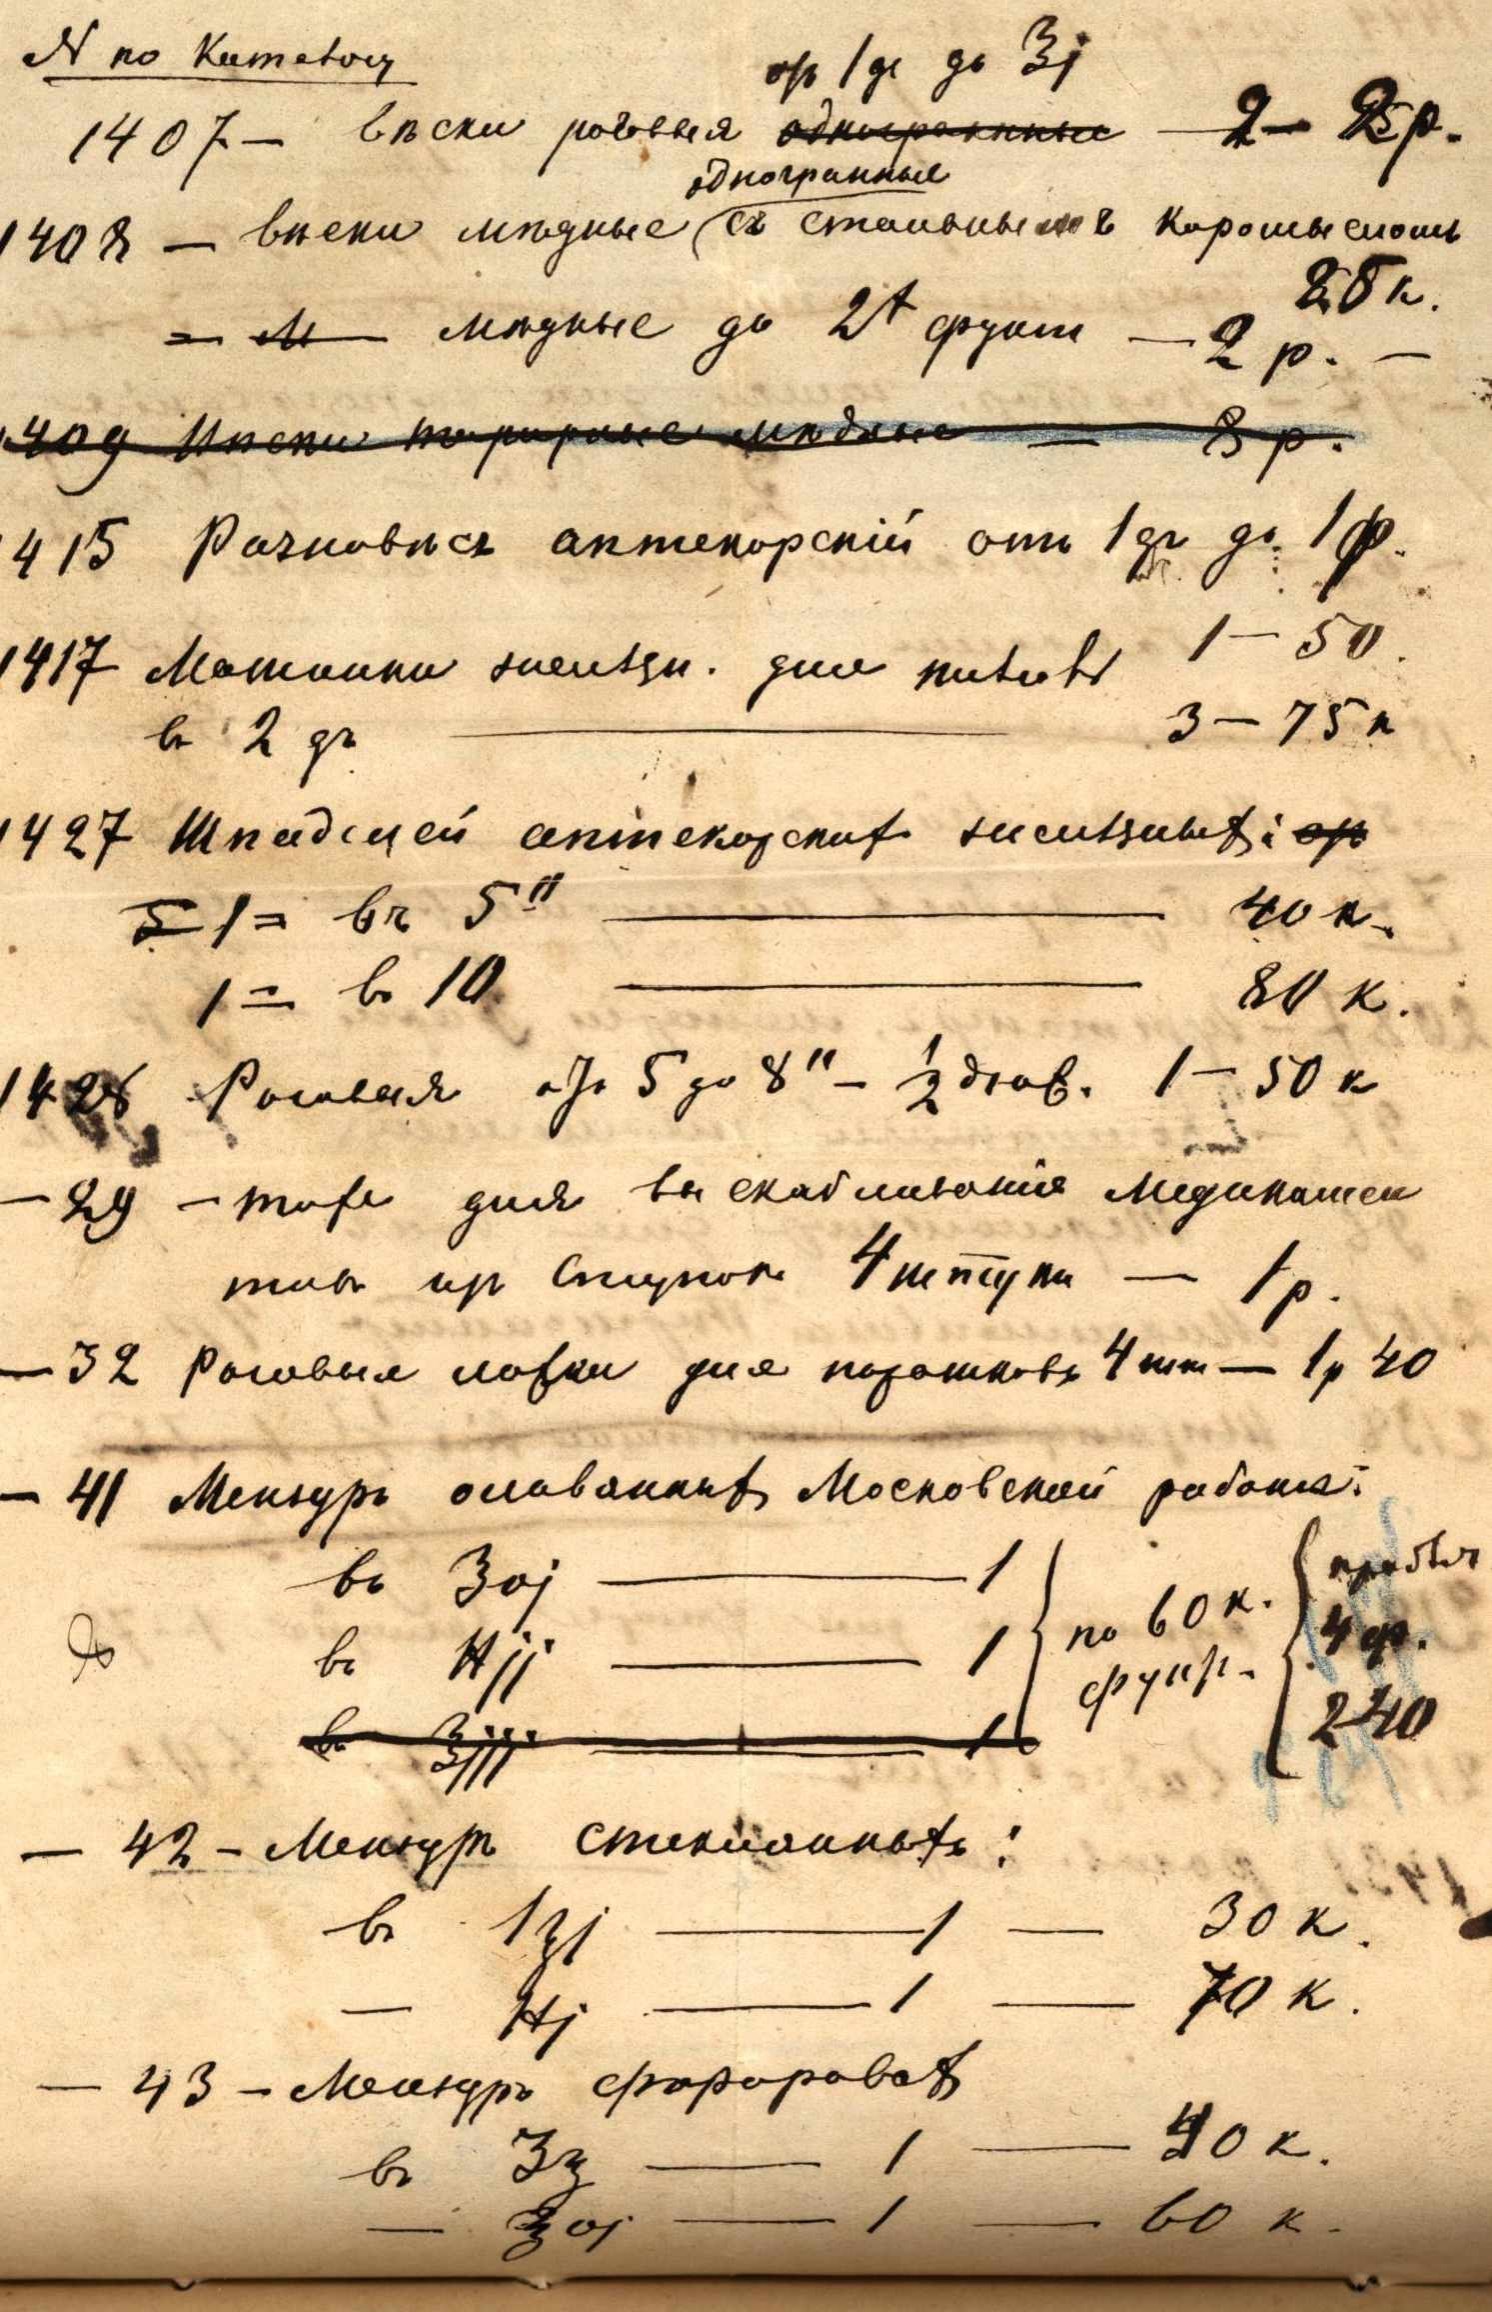 № по Каталогу
от 1 gr до ʒj
1407 — вѣски роговыя одногранные — 2 — 2 р.
одногранныя
1408 — вѣски мѣдные съ стальнымъ коромысломъ
25 к.
= мѣдные до 2 фунт — 2 р. —
1409 Вѣски тарирные мѣдные — 8 р.
1415 Разновѣсъ аптекарскій отъ 1 gr до 1 ф.
1 — 50.
1417 Машинки желѣзн. для
в 2 gr — 3 — 75 к
1427 Шпаделей аптекарскихъ желѣзныхъ: от
5 1 = въ 5" — 40 к.
1 = въ 10 — 80 к.
1428 Роговыя отъ 5 до 8" — ½ дюж. 1 — 50 к
— 29 — тоже для выскабливанія медикамен
товъ изъ ступокъ 4 штуки — 1 р.
— 32 Роговыя ложки для порошковъ 4 шт — 1 р 40
— 41 Мензуръ оловянныхъ Московской работы:
въ ℥vj — 1
въ ℔jj — 1 по 60 к. фунт. 4 ф. 2 40
въ ℥jjj — 1
— 42 — Мензуръ стеклянныхъ:
въ ℥j — 1 — 30 к.
— ℔j — 1 — 70 к.
— 43 — Мензуръ фарфоровыхъ
въ 3℥ — 1 — 40 к.
— ℥vj — 1 — 60 к.